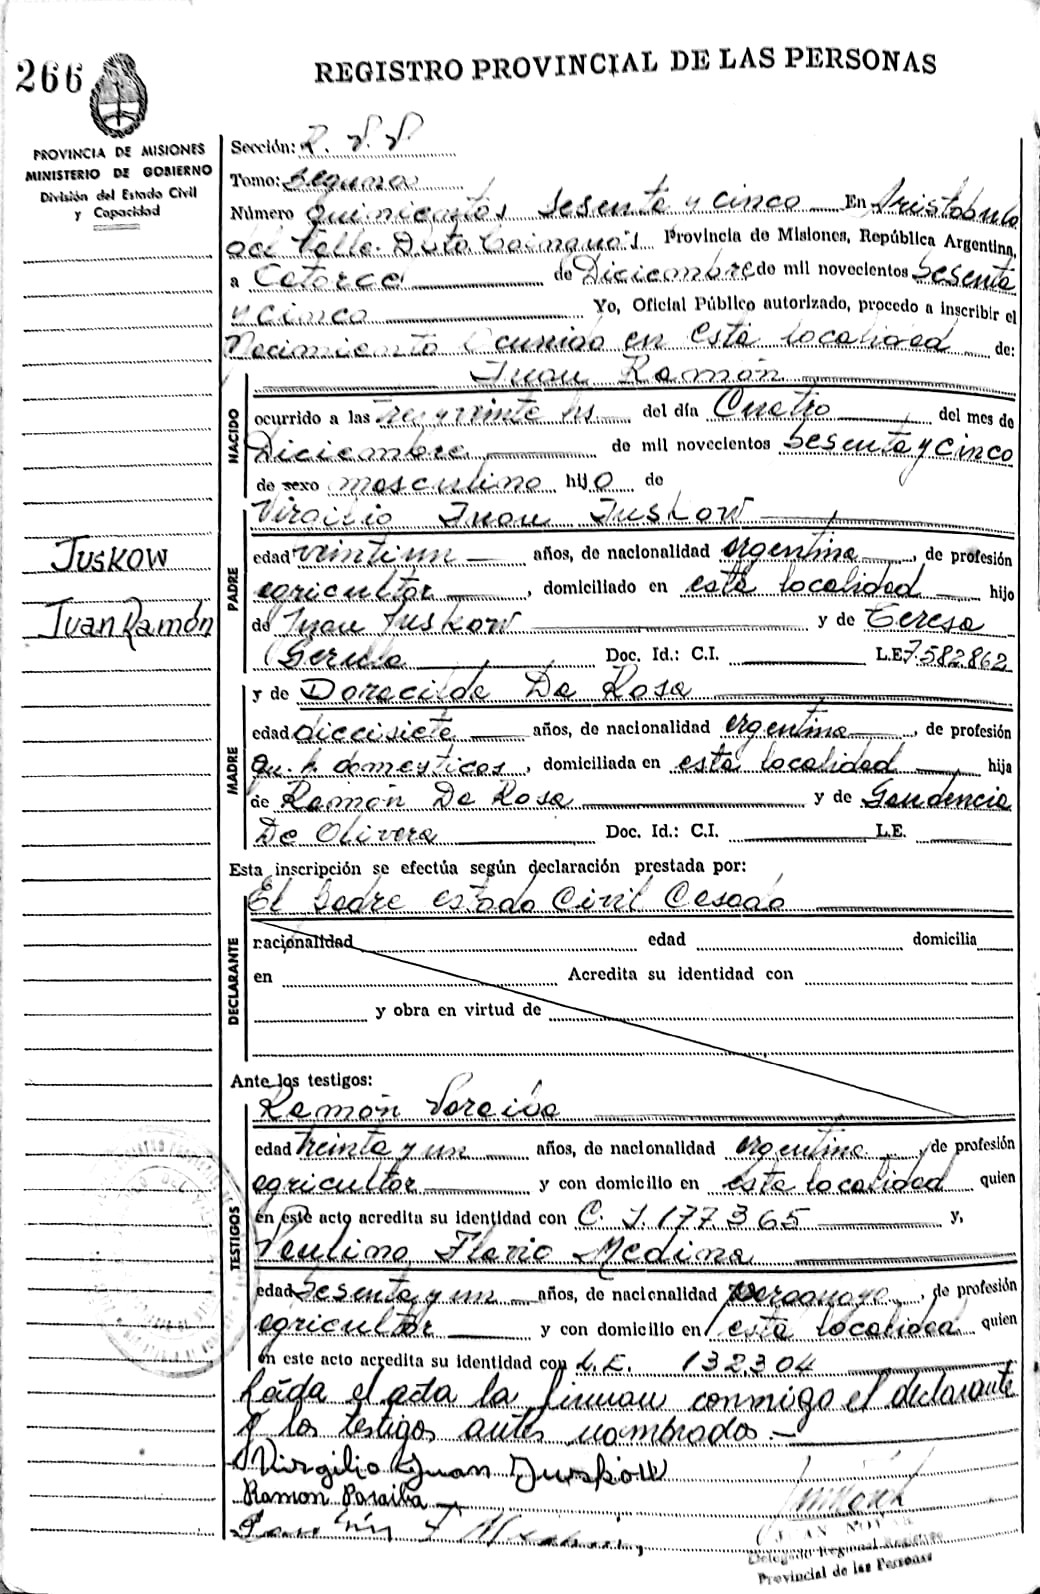 266
REGISTRO PROVINCIAL DE LAS PERSONAS
PROVINCIA DE MISIONES
MINISTERIO DE GOBIERNO
División del Estado Civil
y Capacidad
Sección:
Tomo: Segundo
Número Quinientos Sesenta y cinco En Aristobulo
del Valle. Dpto Cainguas Provincia de Misiones, República Argentina,
a Catorce de Diciembre de mil novecientos Sesenta
y Cinco Yo, Oficial Público autorizado, procedo a inscribir el
Nacimiento Ocurrido en esta localidad de:
Juan Ramón
NACIDO
ocurrido a las tres y veinte hs del día Cuatro del mes de
Diciembre de mil novecientos Sesenta y Cinco
de sexo masculino hijo de
Virgilio Juan Juskow
JUSKOW
Juan Ramón
PADRE
edad veintiun años, de nacionalidad argentina, de profesión
agricultor, domiciliado en esta localidad hijo
de Juan Juskow y de Teresa
Doc. Id.: C.I. L.E. 7.582.862
y de Doracilda Da Rosa
MADRE
edad diecisiete años, de nacionalidad argentina, de profesión
Qu. h. domesticos, domiciliada en esta localidad hija
de Ramón Da Rosa y de Gaudencia
De Olivera Doc. Id.: C.I. L.E.
Esta inscripción se efectúa según declaración prestada por:
El Padre estado Civil Casado
DECLARANTE
nacionalidad edad domicilia
en Acredita su identidad con
y obra en virtud de
Ante los testigos:
Ramón Paraiba
TESTIGOS
edad treinta y un años, de nacionalidad argentina, de profesión
agricultor y con domicilio en esta localidad quien
en este acto acredita su identidad con C. I. 177365 y,
Paulino Flavio Medina
edad Sesenta y un años, de nacionalidad paraguaya, de profesión
agricultor y con domicilio en esta localidad quien
en este acto acredita su identidad con L.E. 132304
Leída el acta la firman conmigo el declarante
y los testigos antes nombrados.-
Virgilio Juan Juskow
Ramon Paraiba
Delegado Regional Registro
Provincial de las Personas